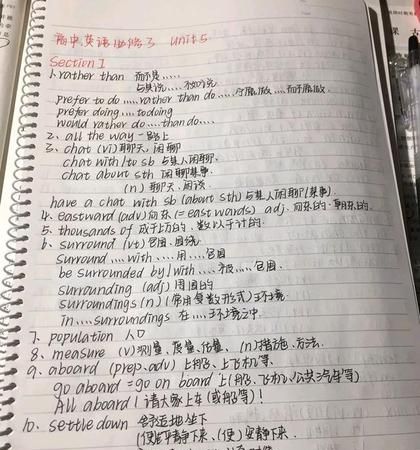 高中英语必修3 Unit5
Section I
1. rather than 而不是....
与其说.... 不如说
prefer to do ....rather than do.... 宁愿做....而不愿做..
prefer doing....to doing
would rather do....than do....
2. all the way 一路上
3. chat (vi) 聊天, 闲聊
chat with/to sb 与某人闲聊
chat about sth 闲聊某事
(n) 聊天, 闲谈
have a chat with sb (about sth) 与某人闲聊(某事)
4. eastward (adv) 向东 (=eastwards) adj. 向东的, 朝东的
5. thousands of 成千上万的, 数以千计的
6. surround (vt) 包围, 围绕
surround....with....用....包围
be surrounded by/with....被....包围
surrounding (adj) 周围的
surroundings (n) (常用复数形式) 环境
in....surroundings 在....环境之中
7. population 人口
8. measure (v) 测量、度量、估量、(n) 措施、方法
9. aboard (prep.adv) 上船、上飞机等.
go aboard = go on board 上(船、飞机、公共汽车等)
All aboard! 请大家上车(或船等)!
10. settle down 舒适地坐下
(使)平静下来、(使)安静下来.